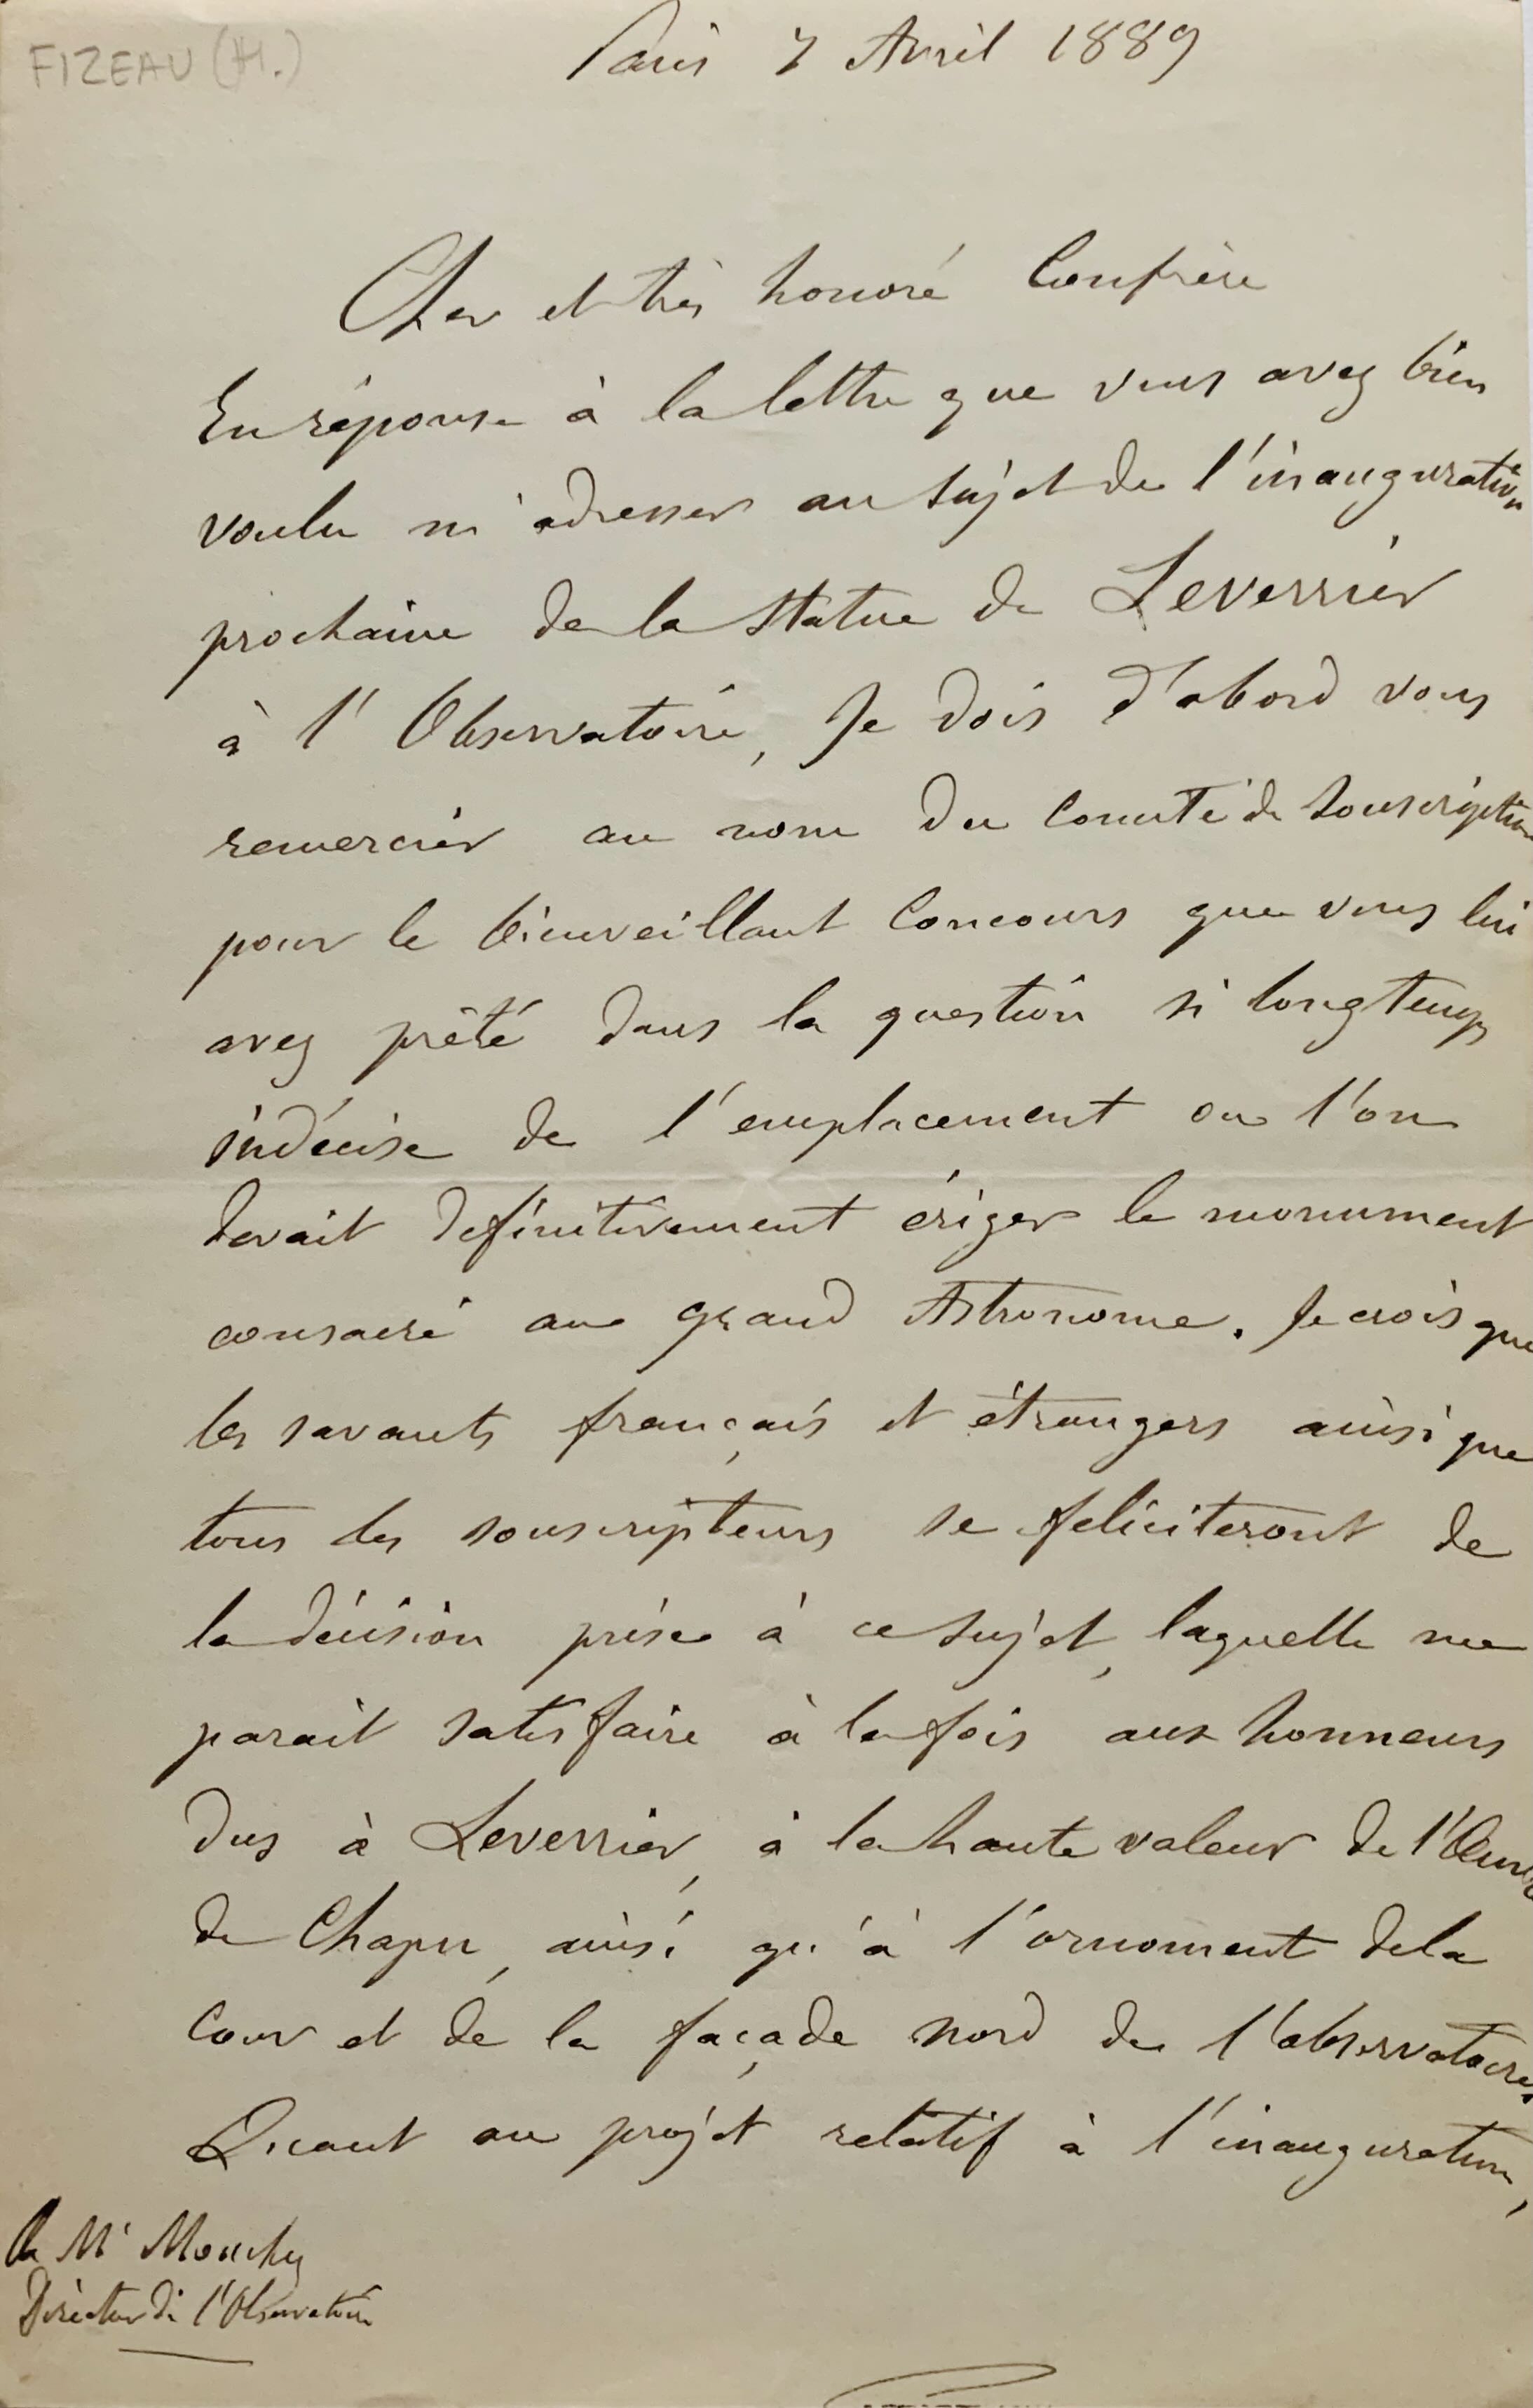 FIZEAU (H.)
Paris 7 Avril 1889
Cher et très honoré Confrère
En réponse à la lettre que vous avez bien
voulu m'adresser au sujet de l'inauguration
prochaine de la statue de Leverrier
à l'Observatoire, Je dois d'abord vous
remercier au nom du Comité de Souscription
pour le bienveillant Concours que vous lui
avez prêté dans la question si longtemps
indécise de l'emplacement ou l'on
devait definitivement ériger le monument
consacré au grand Astronome. Je crois que
les savants français et étrangers ainsi que
tous les souscripteurs se feliciteront de
la décision prise à ce sujet, laquelle me
parait satisfaire à la fois aux honneurs
dus à Leverrier, à la haute valeur de l'Œuvre
de Chapu, ainsi qu'à l'ornement de la
Cour et de la façade nord de l'observatoire.
Quant au projet relatif à l'inauguration,
Mr Mouchez
Directeur de l'Observatoire